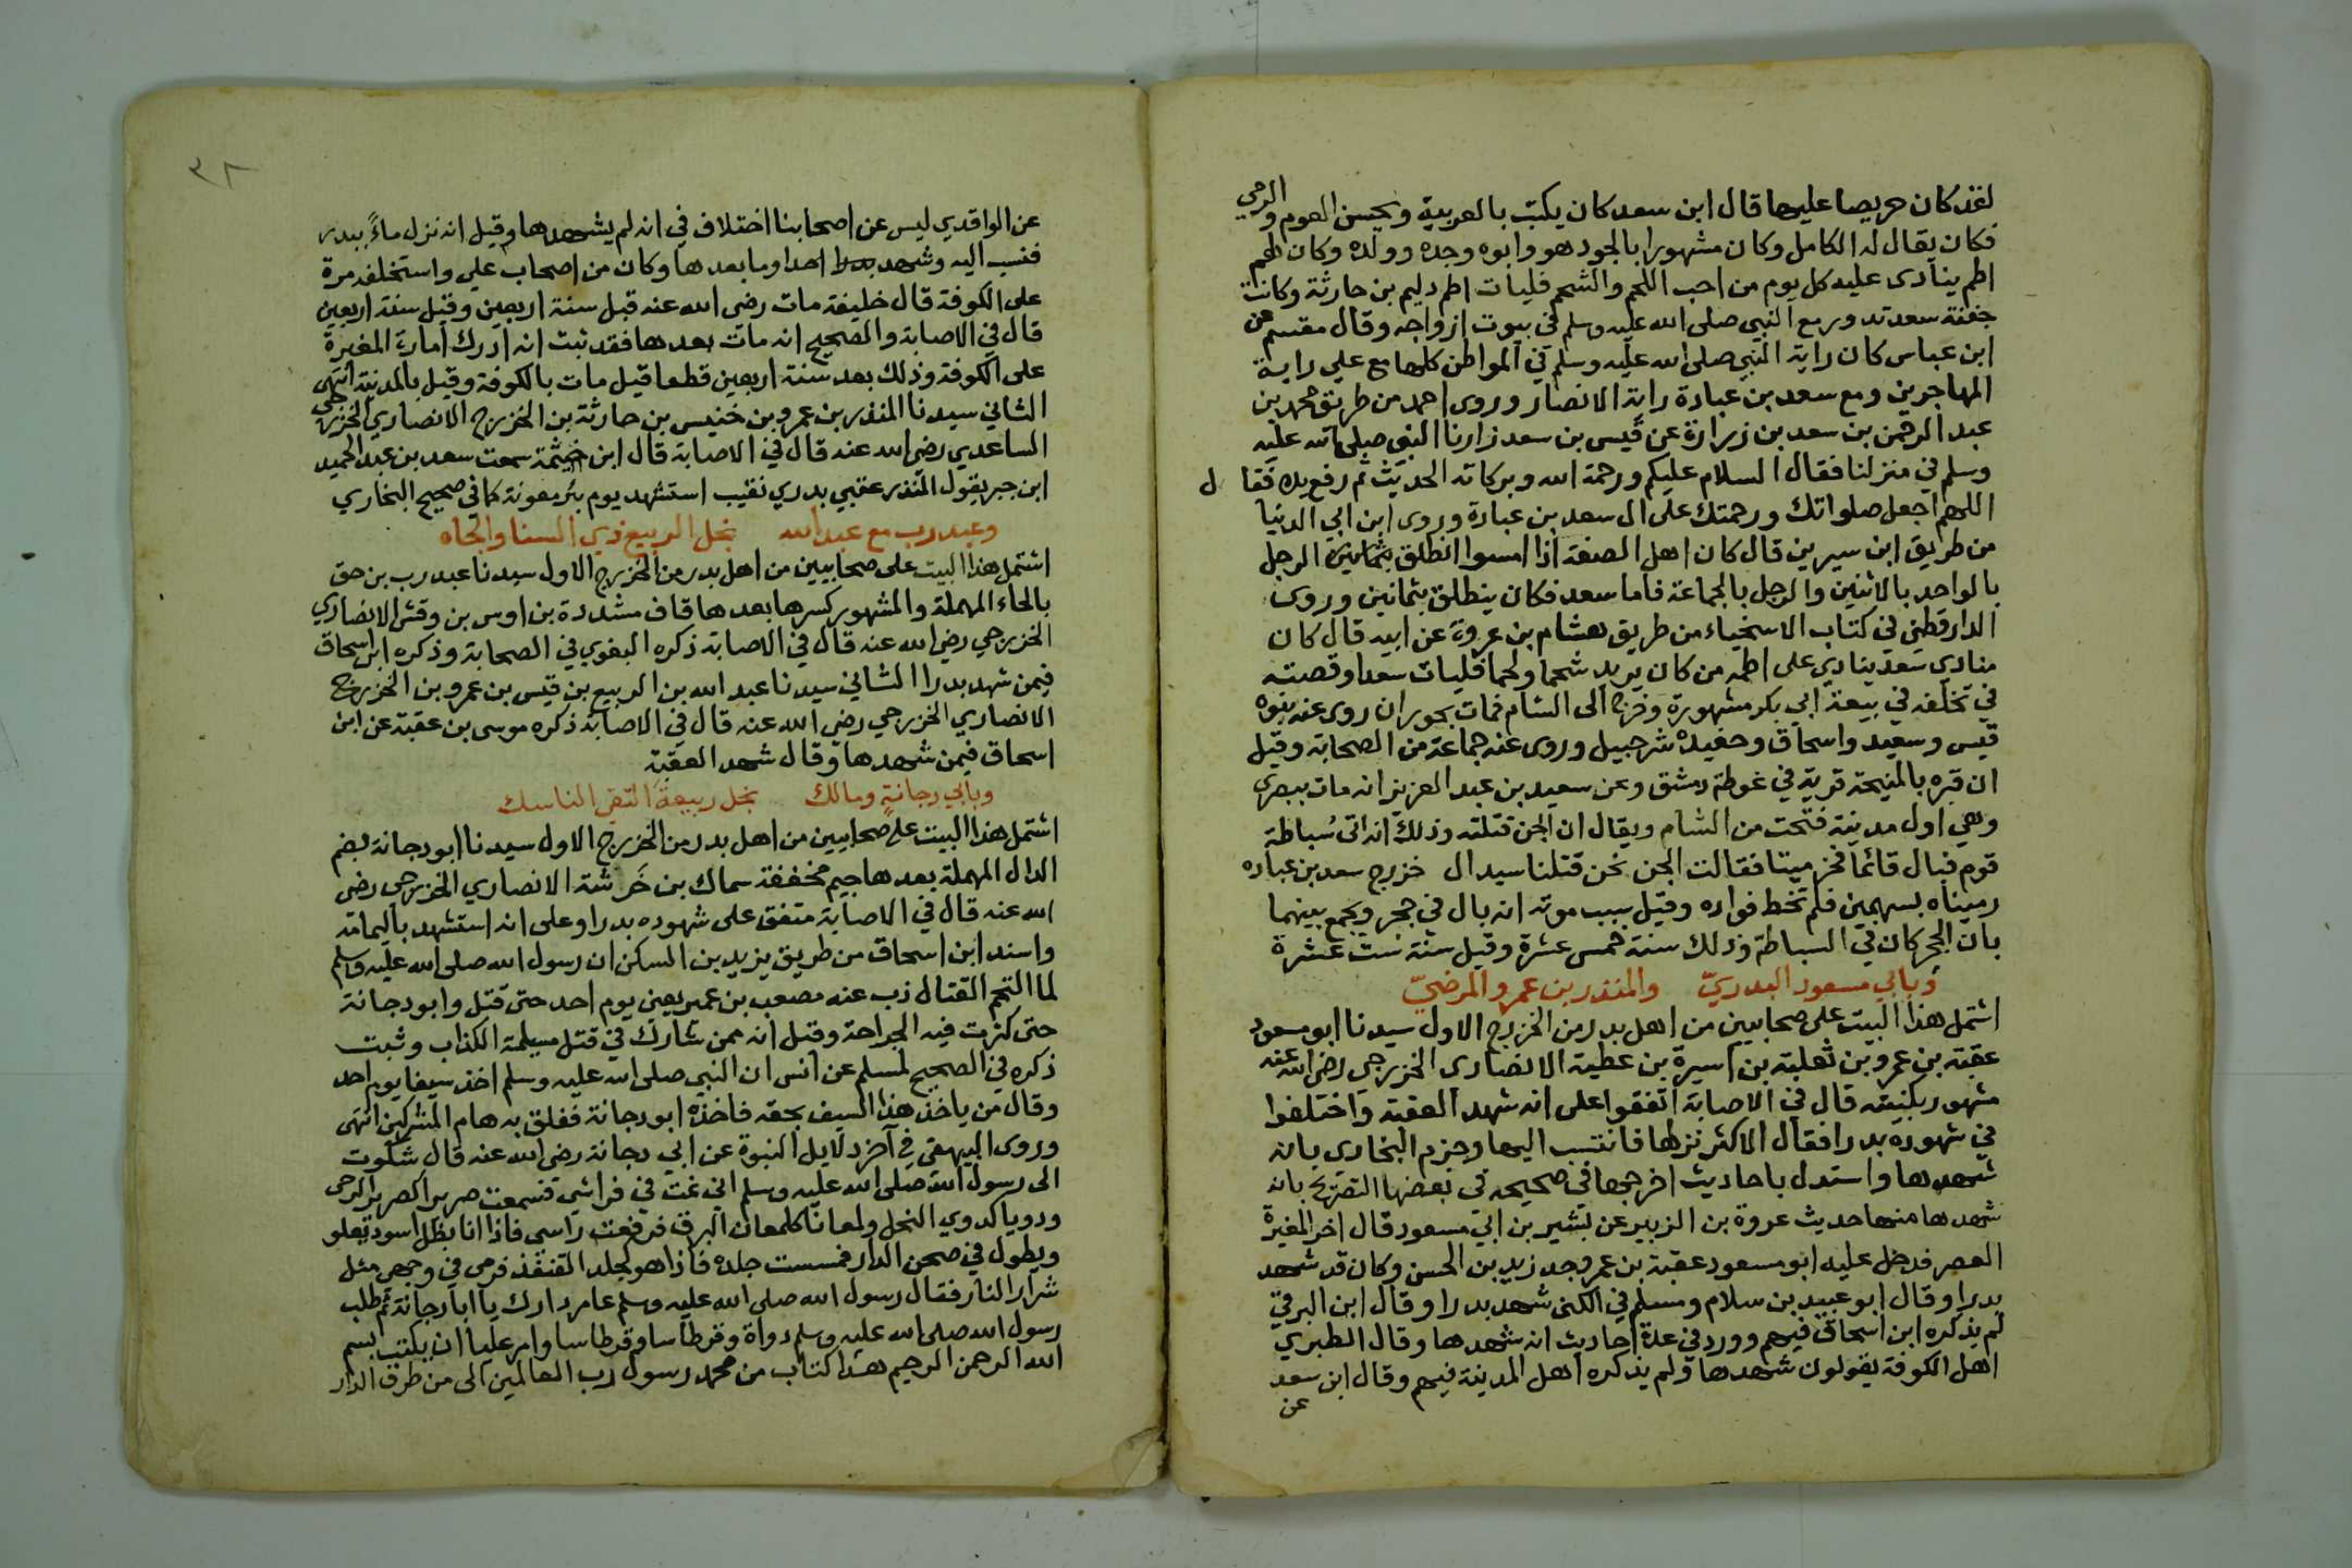 لقد كان حريصا عليها قال ابن سعد كان يكتب بالعربية ويحسن العوم والرمي
فكان يقال له الكامل وكان مشهورا بالجود هو وابوه وجده وولده وكان لهم
اطم ينادى عليه كل يوم من احب اللحم والشحم فليات اطم دليم بن حارثة وكانت
جفنة سعد تدور مع النبي صلى الله عليه وسلم في بيوت ازواجه وقال مقسم عن
ابن عباس كان راية النبي صلى الله عليه وسلم في المواطن كلها مع علي راية
المهاجرين ومع سعد بن عبادة راية الانصار وروى احمد من طريق محمد بن
عبد الرحمن بن سعد بن زرارة عن قيس بن سعد زارنا النبي صلى الله عليه
وسلم في منزلنا فقال السلام عليكم ورحمة الله وبركاته الحديث ثم رفع يده فقال
اللهم اجعل صلواتك ورحمتك على ال سعد بن عبادة وروى ابن ابي الدنيا
من طريق ابن سيرين قال كان اهل الصفة اذا امسوا انطلق الرجل
بالواحد بالاثنين والرجل بالجماعة فاما سعد فكان ينطلق بثمانين وروى
الدارقطني في كتاب الاسخياء من طريق هشام بن عروة عن ابيه قال كان
منادي سعد ينادي على اطمه من كان يريد شحما ولحما فليات سعدا وقصته
في تخلفه في بيعة ابي بكر مشهورة وخرج الى الشام فمات بحوران روى عنه بنوه
قيس وسعيد واسحاق وحفيده شرحبيل وروى عنه جماعة من الصحابة وقيل
ان قبره بالمنيحة قرية في غوطة دمشق وعن سعيد بن عبد العزيز انه مات ببصرى
وهي اول مدينة فتحت من الشام ويقال ان الجن قتلته وذلك انه اتى سُباطة
قوم فبال قائما فخر ميتا فقالت الجن نحن قتلنا سيد ال خزرج سعد بن عباده
رميناه بسهمين فلم تخط فواده وقيل سبب موته انه بال في جحر ويجمع بينهما
بان الجحر كان في السباطة وذلك سنة خمس عشرة وقيل سنة ست عشرة
وبابي مسعود البدريّ والمنذر بن عمرو المرضيّ
اشتمل هذا البيت على صحابيين من اهل بدر من الخزرج الاول سيدنا ابو مسعود
عقبة بن عمرو بن ثعلبة بن اسيرة بن عطية الانصارى الخزرجي رضي الله عنه
مشهور بكنيته قال في الاصابة اتفقوا على انه شهد العقبة واختلفوا
في شهوده بدرا فقال الاكثر نزلها فانتسب اليها وجزم البخارى بانه
شهدها واستدل باحاديث اخرجها في صحيحه في بعضها التصريح بانه
شهدها منها حديث عروة بن الزبير عن بشير بن ابي مسعود قال اخر المغيرة
العصر فدخل عليه ابو مسعود عقبة بن عمرو جد زيد بن الحسن وكان قد شهد
بدرا وقال ابو عبيد بن سلام ومسلم في الكنى شهد بدرا وقال ابن البرقي
لم يذكره ابن اسحاق فيهم وورد في عدة احاديث انه شهدها وقال الطبري
اهل الكوفة يقولون شهدها ولم يذكره اهل المدينة فيهم وقال ابن سعد
عن
٣٨
عن الواقدي ليس عن اصحابنا اختلاف في انه لم يشهدها وقيل انه نزل ماءً ببدر
فنسب اليه وشهد احدا وما بعدها وكان من اصحاب علي واستخلفه مرة
على الكوفة قال خليفة مات رضي الله عنه قبل سنة اربعين وقيل سنة اربعين
قال في الاصابة والصحيح انه مات بعدها فقد ثبت انه ادرك امارة المغيرة
على الكوفة وذلك بعد سنة اربعين قطعا قيل مات بالكوفة وقيل بالمدينة انتهى
الثاني سيدنا المنذر بن عمرو بن خنيس بن حارثة بن الخزرج الانصاري الخزرجي
الساعدي رضي الله عنه قال في الاصابة قال ابن خيثمة سمعت سعد بن عبد الحميد
ابن جبر يقول المنذر عقبي بدري نقيب استشهد يوم بئر معونة كما في صحيح البخاري
وعبد رب مع عبد الله نجل الربيع ذي السنا والجاه
اشتمل هذا البيت على صحابيين من اهل بدر من الخزرج الاول سيدنا عبد رب بن حق
بالحاء المهملة والمشهور كسرها بعدها قاف مشددة بن اوس بن وقش الانصاري
الخزرجي رضي الله عنه قال في الاصابة ذكره البغوي في الصحابة وذكره ابن اسحاق
فيمن شهد بدرا الثاني سيدنا عبد الله بن الربيع بن قيس بن عمرو بن الخزرج
الانصاري الخزرجي رضي الله عنه قال في الاصابة ذكره موسى بن عقبة عن ابن
اسحاق فيمن شهدها وقال شهد العقبة
وبابي دجانةٍ ومالك نجل ربيعة التقي الناسك
اشتمل هذا البيت على صحابيين من اهل بدر من الخزرج الاول سيدنا ابو دجانة بضم
الدال المهملة بعدها جيم مخففة سماك بن خَرشة الانصاري الخزرجي رضي
الله عنه قال في الاصابة متفق على شهوده بدرا وعلى انه استشهد باليمامة
واسند ابن اسحاق من طريق يزيد بن السكن ان رسول الله صلى الله عليه وسلم
لما التحم القتال ذب عنه مصعب بن عمير يعني يوم احد حتى قتل وابو دجانة
حتى كثرت فيه الجراحة وقيل انه ممن شارك في قتل مسيلمة الكذاب وثبت
ذكره في الصحيح لمسلم عن انس ان النبي صلى الله عليه وسلم اخذ سيفا يوم احد
وقال من ياخذ هذا السيف بحقه فاخذه ابو دجانة ففلق به هام المشركين انتهى
وروى البيهقي في آخر دلايل النبوة عن ابي دجانة رضي الله عنه قال شكوت
الى رسول الله صلى الله عليه وسلم اني نمت في فراشي فسمعت صريرا كصرير الرحى
ودويا كدوي النحل ولمعانا كلمعان البرق فرفعت راسي فاذا انا بظل اسود يعلو
ويطول في صحن الدار فمسست جلده فاذا هو كجلد القنفذ فرمى في وجهي مثل
شرار النار فقال رسول الله صلى الله عليه وسلم عامر دارك يا ابا دجانة ثم طلب
رسول الله صلى الله عليه وسلم دواة وقرطاسا وقرطاسا وامر عليا ان يكتب بسم
الله الرحمن الرحيم هذا كتاب من محمد رسول رب العالمين الى من طرق الدار